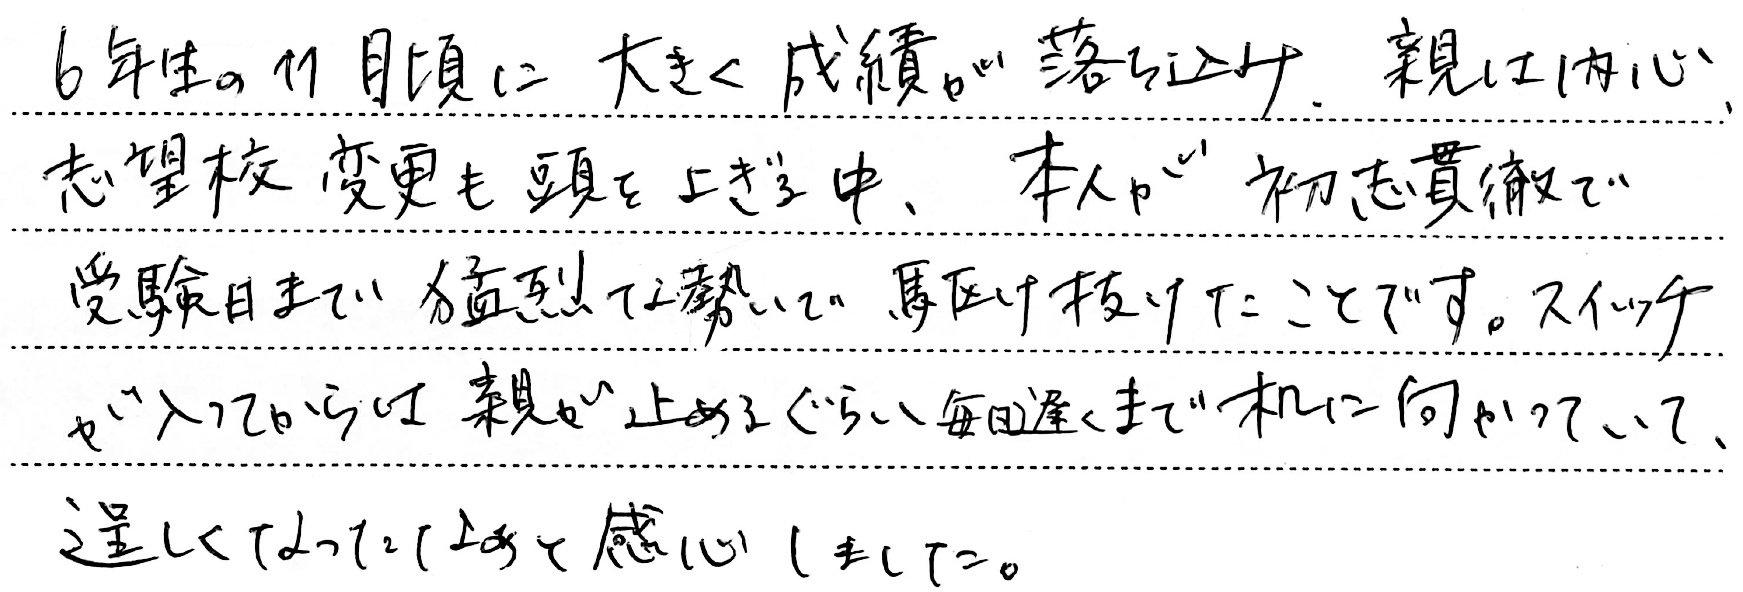 6年生の11月頃に大きく成績が落ち込み、親は内心、
志望校変更も頭をよぎる中、本人が初志貫徹で
受験日まで猛烈な勢いで駆け抜けたことです。スイッチ
が入ってからは親が止めるぐらい毎日遅くまで机に向かっていて、
逞しくなったなあと感心しました。